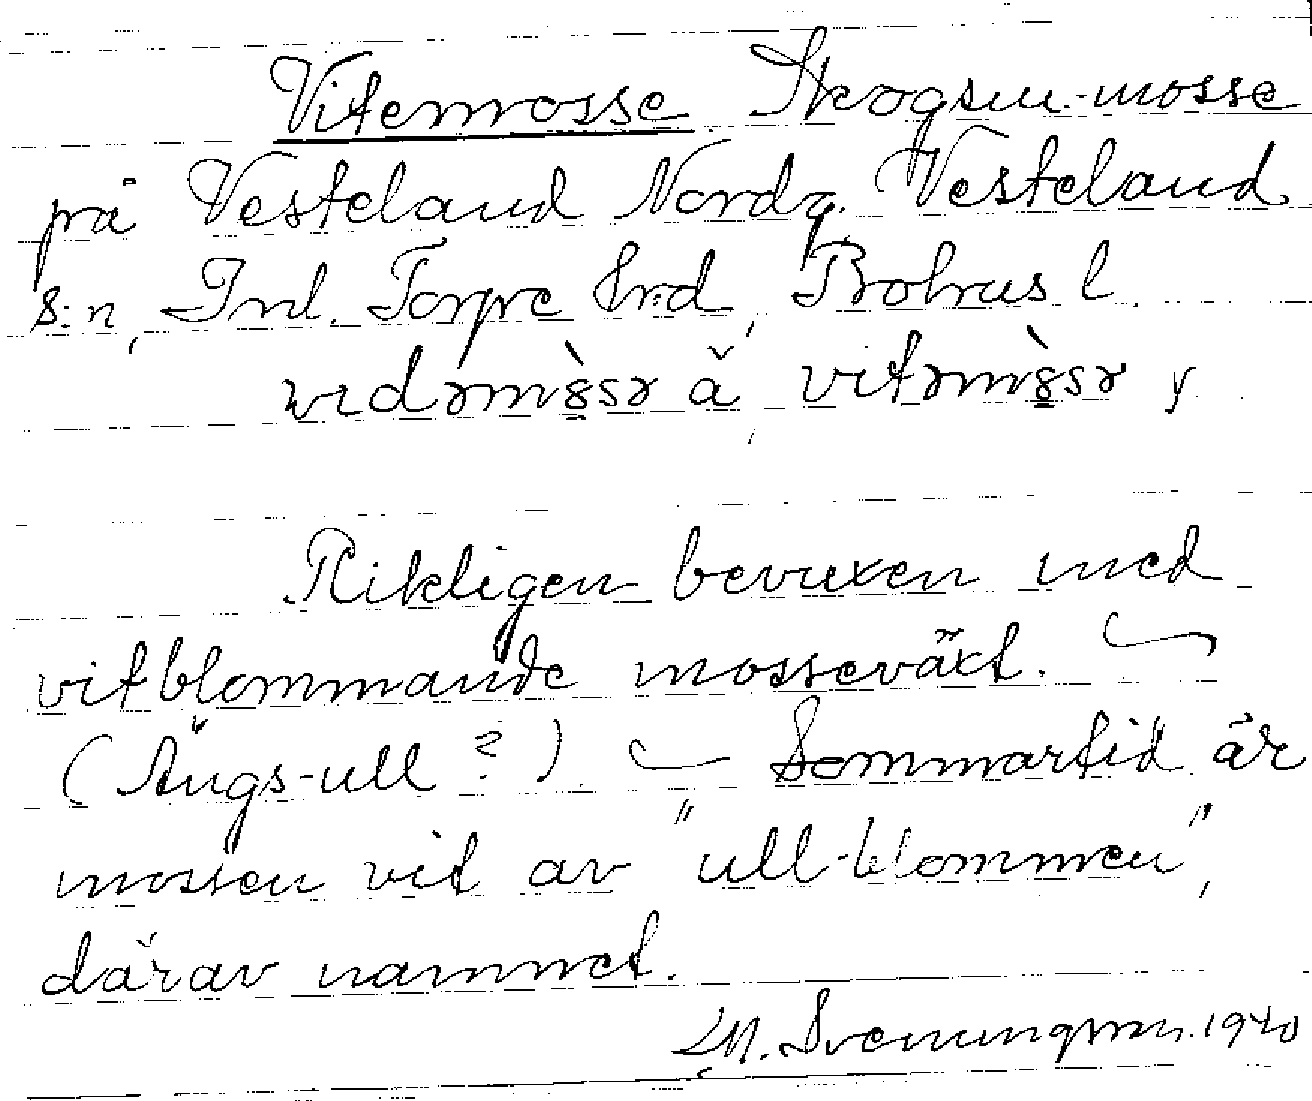 Vitemosse Skogsm-mosse
på Vesteland Nordg. Vesteland
s:n, Inl. Torpe hrd, Bohus l.
vidəmɷ̀sə å vitəmɷ̀sə y
Rikligen bevuxen med
vitblommande mosseväxt. —
(Ängs-ull ?) — Sommartid är
mossen vit av "ull-blommen",
därav namnet.
M. Svenungsson. 1940